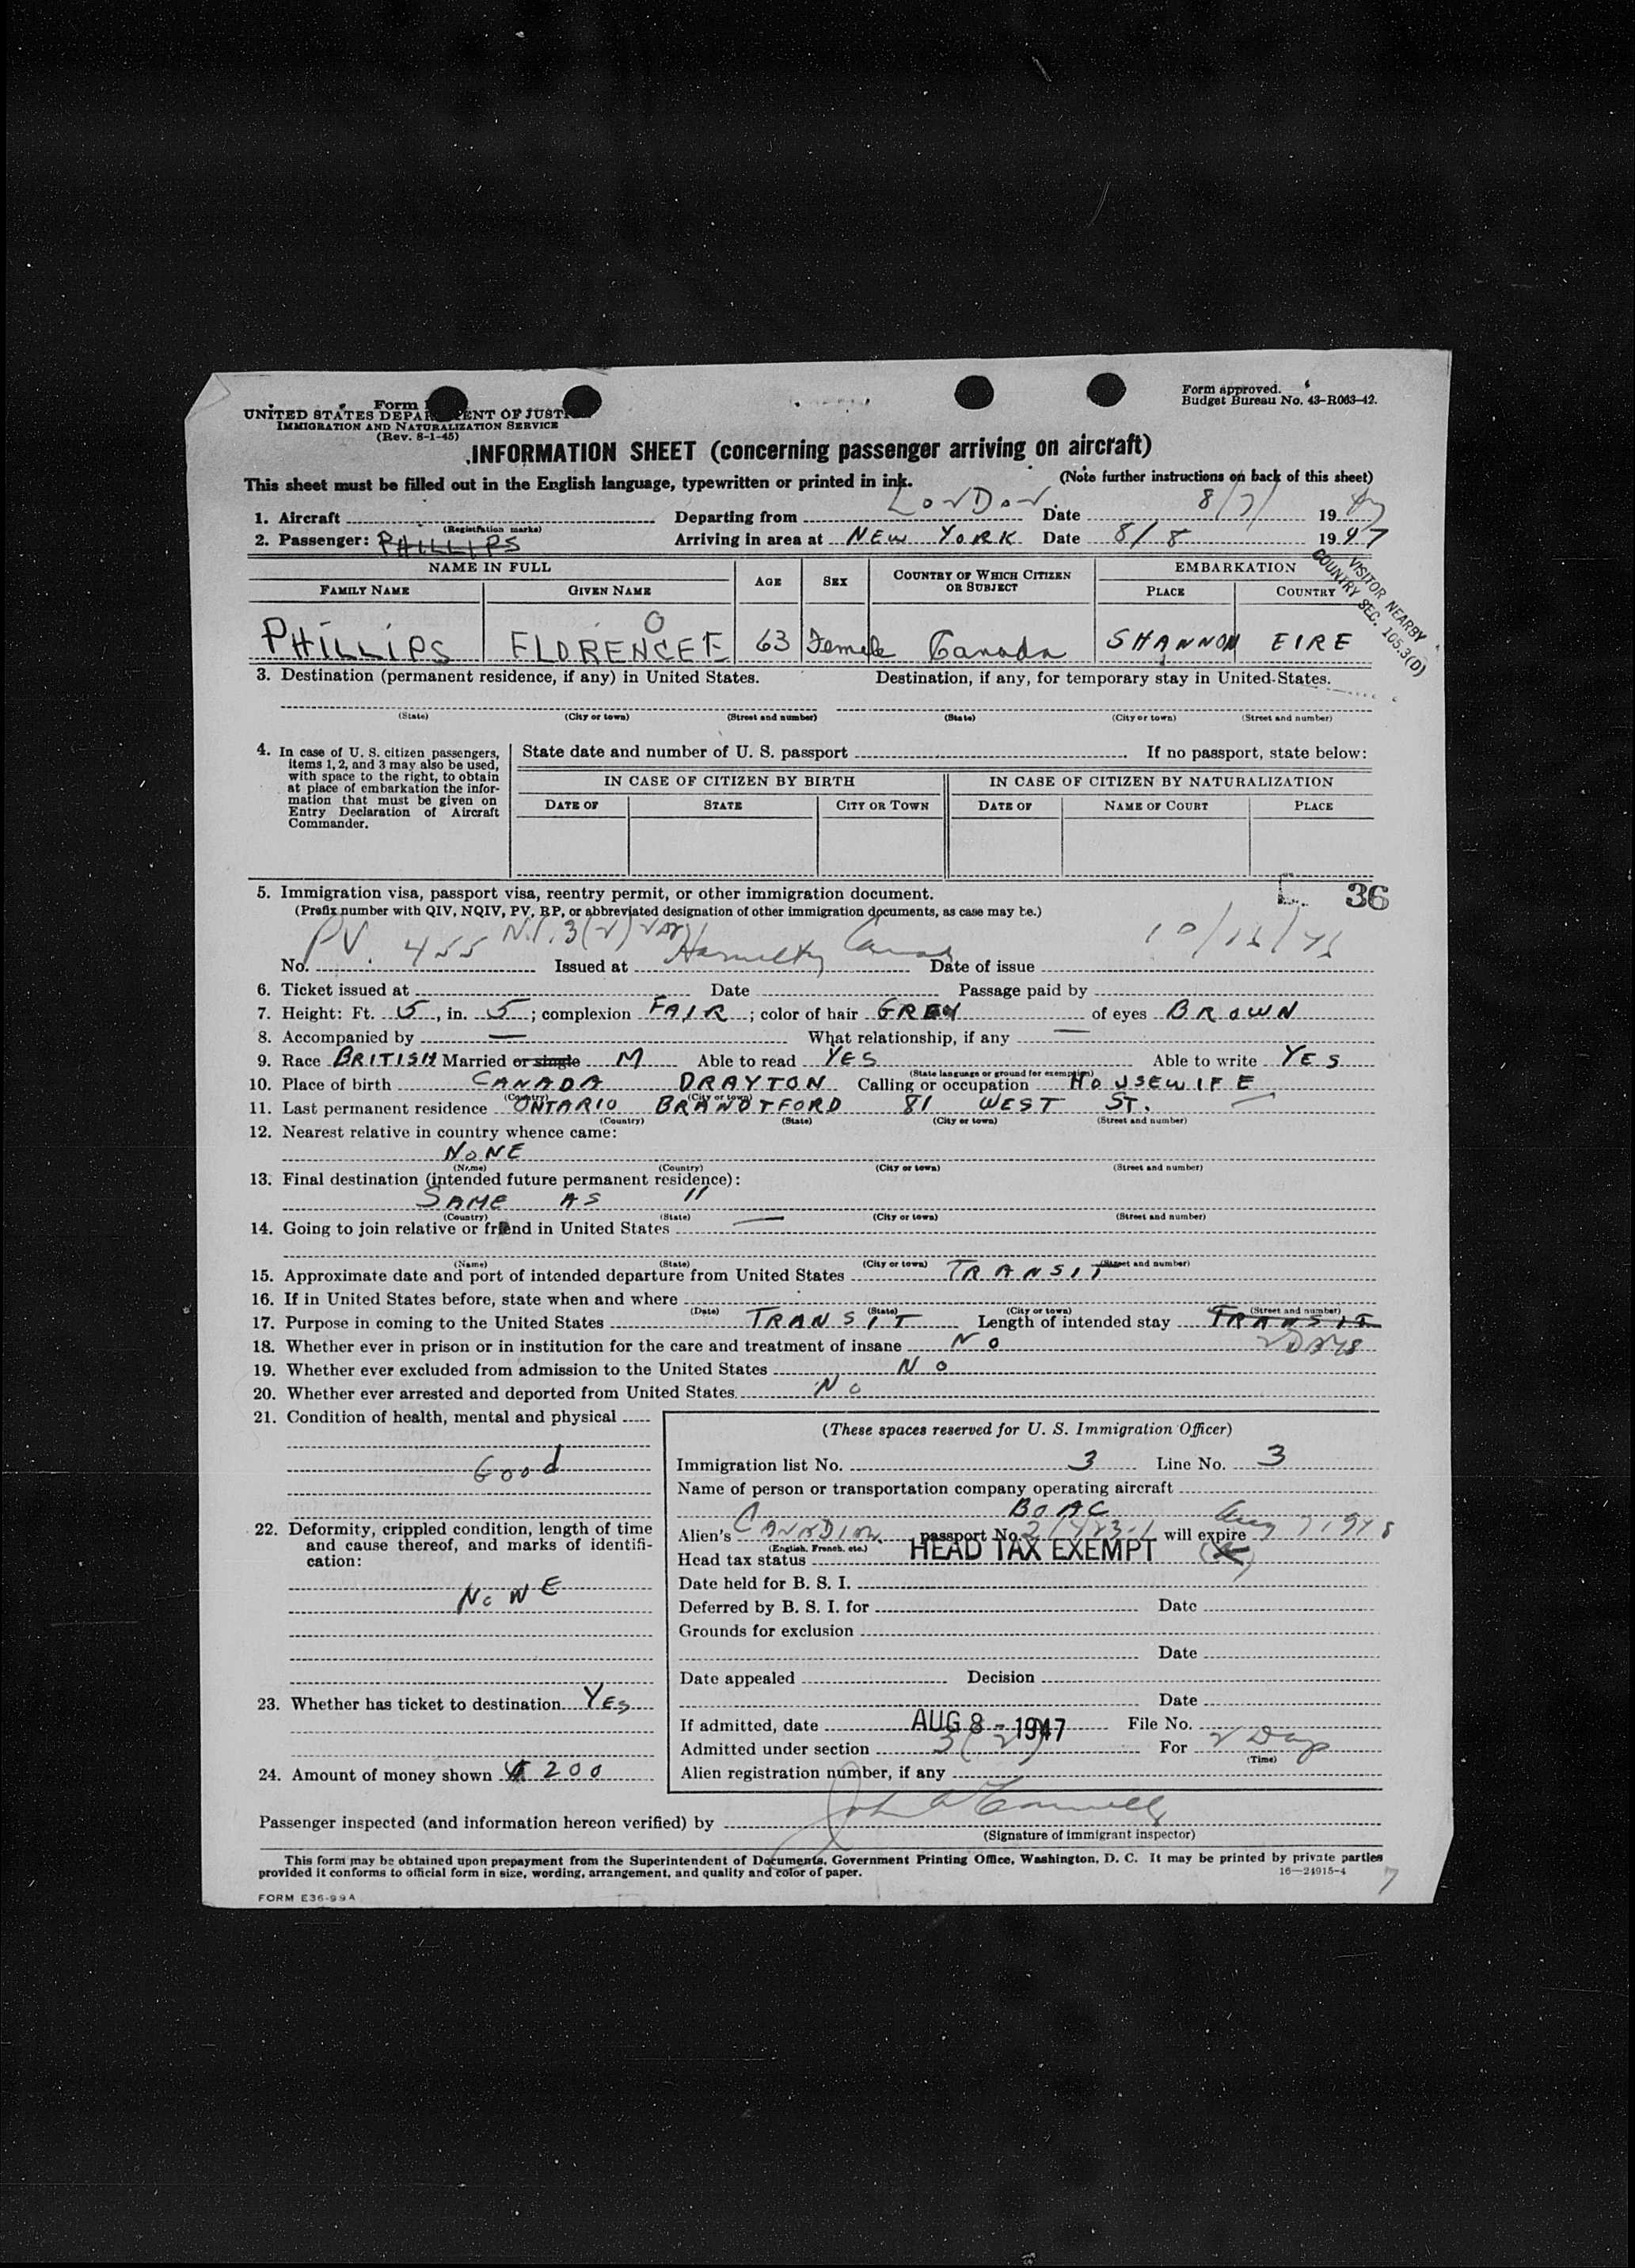 Form
Form approved.
UNITED STATES DEPARTMENT OF JUSTI
Budget Bureau No. 43-R063-42.
IMMIGRATION AND NATURALIZATION SERVICE
(Rev. 8-1-45)
INFORMATION SHEET (concerning passenger arriving on aircraft)
This sheet must be filled out in the English language, typewritten or printed in ink.
(Note further instructions on back of this sheet)
1. Aircraft Departing from LONDON. Date 8/7/ 1947
(Registration marks)
2. Passenger: PHILLIPS Arriving in area at NEW YORK Date 8/8 1947
VISITOR NEARBY
COUNTRY SEC. 105.3(D)
NAME IN FULL AGE SEX COUNTRY OF WHICH CITIZEN OR SUBJECT EMBARKATION
FAMILY NAME GIVEN NAME PLACE COUNTRY
O
PHILLIPS FLORENCE E 63 Female Canada SHANNON EIRE
3. Destination (permanent residence, if any) in United States. Destination, if any, for temporary stay in United States.
(State) (City or town) (Street and number) (State) (City or town) (Street and number)
4. In case of U. S. citizen passengers, items 1, 2, and 3 may also be used, with space to the right, to obtain at place of embarkation the information that must be given on Entry Declaration of Aircraft Commander.
State date and number of U. S. passport If no passport, state below:
IN CASE OF CITIZEN BY BIRTH IN CASE OF CITIZEN BY NATURALIZATION
DATE OF STATE CITY OR TOWN DATE OF NAME OF COURT PLACE
36
5. Immigration visa, passport visa, reentry permit, or other immigration document.
(Prefix number with QIV, NQIV, PV, RP, or abbreviated designation of other immigration documents, as case may be.)
No. PV. 455 Issued at Hamilton Canada Date of issue
6. Ticket issued at Date Passage paid by
7. Height: Ft. 5, in. 5; complexion FAIR; color of hair GREY of eyes BROWN
8. Accompanied by — What relationship, if any —
9. Race BRITISH Married or single M Able to read YES Able to write YES
(State language or ground for exemption)
10. Place of birth CANADA DRAYTON Calling or occupation HOUSEWIFE
(Country) (City or town)
11. Last permanent residence ONTARIO BRANDTFORD 81 WEST ST.
(Country) (State) (City or town) (Street and number)
12. Nearest relative in country whence came:
NONE
(Name) (Country) (City or town) (Street and number)
13. Final destination (intended future permanent residence):
SAME AS 11
(Country) (State) (City or town) (Street and number)
14. Going to join relative or friend in United States —
(Name) (State) (City or town) (Street and number)
15. Approximate date and port of intended departure from United States TRANSIT
16. If in United States before, state when and where
(Date) (State) (City or town) (Street and number)
17. Purpose in coming to the United States TRANSIT Length of intended stay TRANSIT
2 DAYS
18. Whether ever in prison or in institution for the care and treatment of insane NO
19. Whether ever excluded from admission to the United States NO
20. Whether ever arrested and deported from United States NO
21. Condition of health, mental and physical
Good
22. Deformity, crippled condition, length of time and cause thereof, and marks of identification:
NONE
23. Whether has ticket to destination YES
24. Amount of money shown $200
(These spaces reserved for U. S. Immigration Officer)
Immigration list No. 3 Line No. 3
Name of person or transportation company operating aircraft
BOAC
Alien's CANADIAN passport No. will expire Aug 7, 1948
(English, French, etc.)
Head tax status HEAD TAX EXEMPT
Date held for B. S. I.
Deferred by B. S. I. for Date
Grounds for exclusion
Date
Date appealed Decision
Date
If admitted, date AUG 8 - 1947 File No.
Admitted under section 3(2) For 2 Days
(Time)
Alien registration number, if any
Passenger inspected (and information hereon verified) by
(Signature of immigrant inspector)
This form may be obtained upon prepayment from the Superintendent of Documents, Government Printing Office, Washington, D. C. It may be printed by private parties
provided it conforms to official form in size, wording, arrangement, and quality and color of paper.
16—24915-4
7
FORM E36-99A